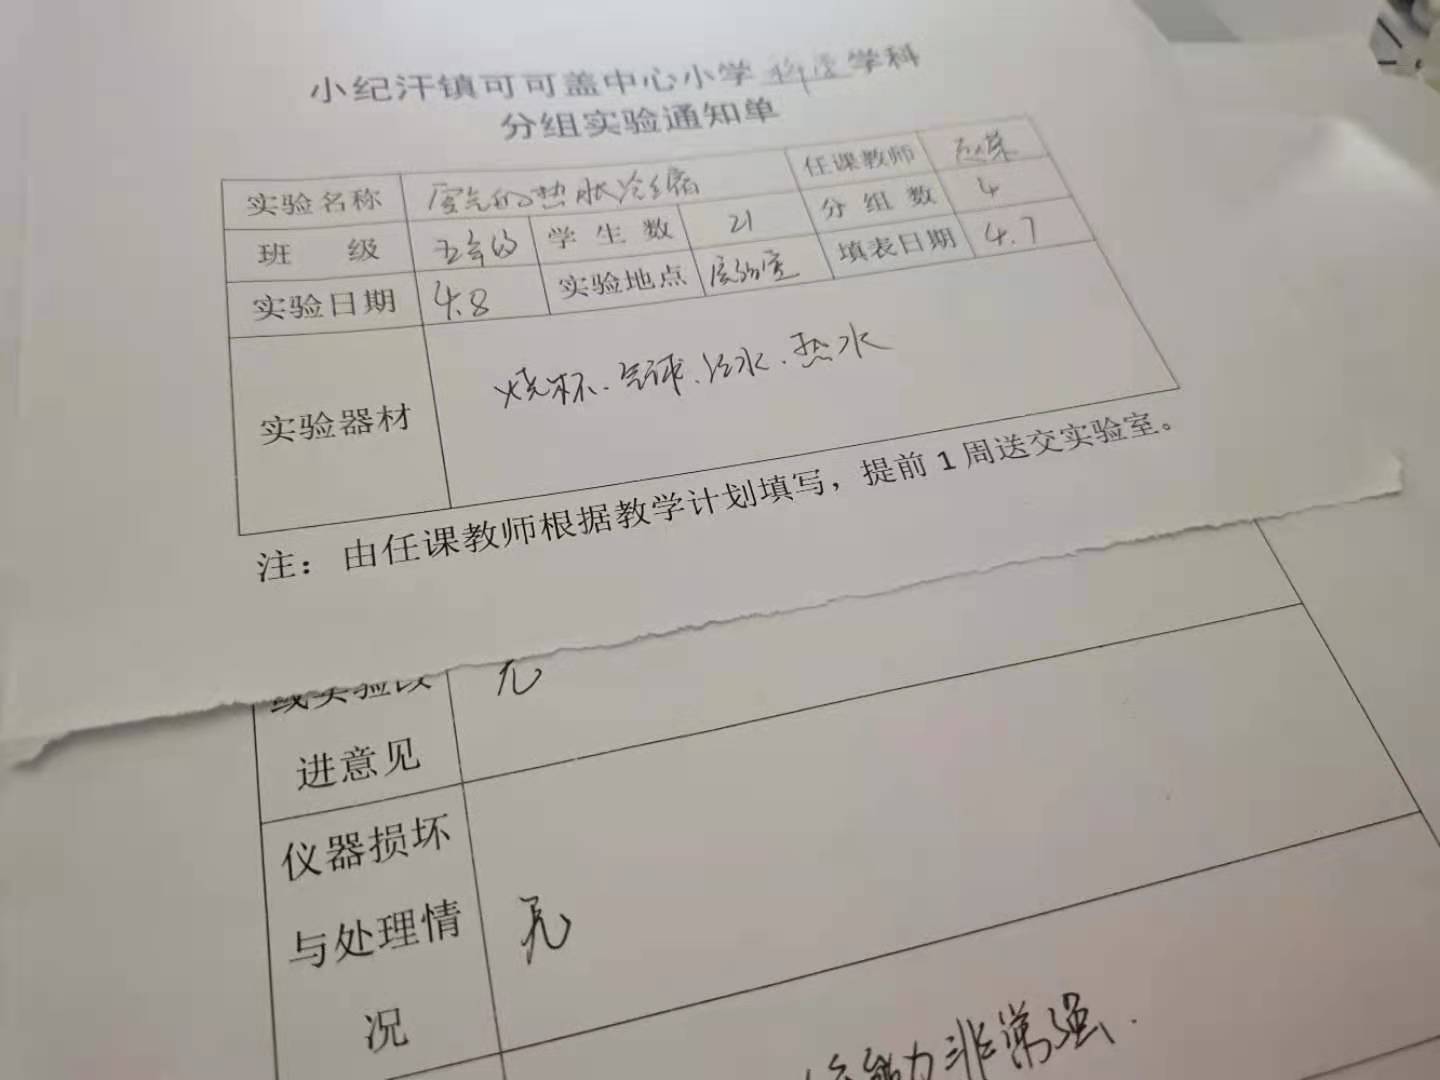 小纪汗镇可可盖中心小学科学学科
分组实验通知单
实验名称 空气的热胀冷缩 任课教师
班 级 五年级 学生数 21 分组数 4
实验日期 4.8 实验地点 实验室 填表日期 4.7
实验器材 烧杯、气球、冷水、热水
注：由任课教师根据教学计划填写，提前1周送交实验室。
实验改 无
进意见
仪器损坏
与处理情 无
况
能力非常强.